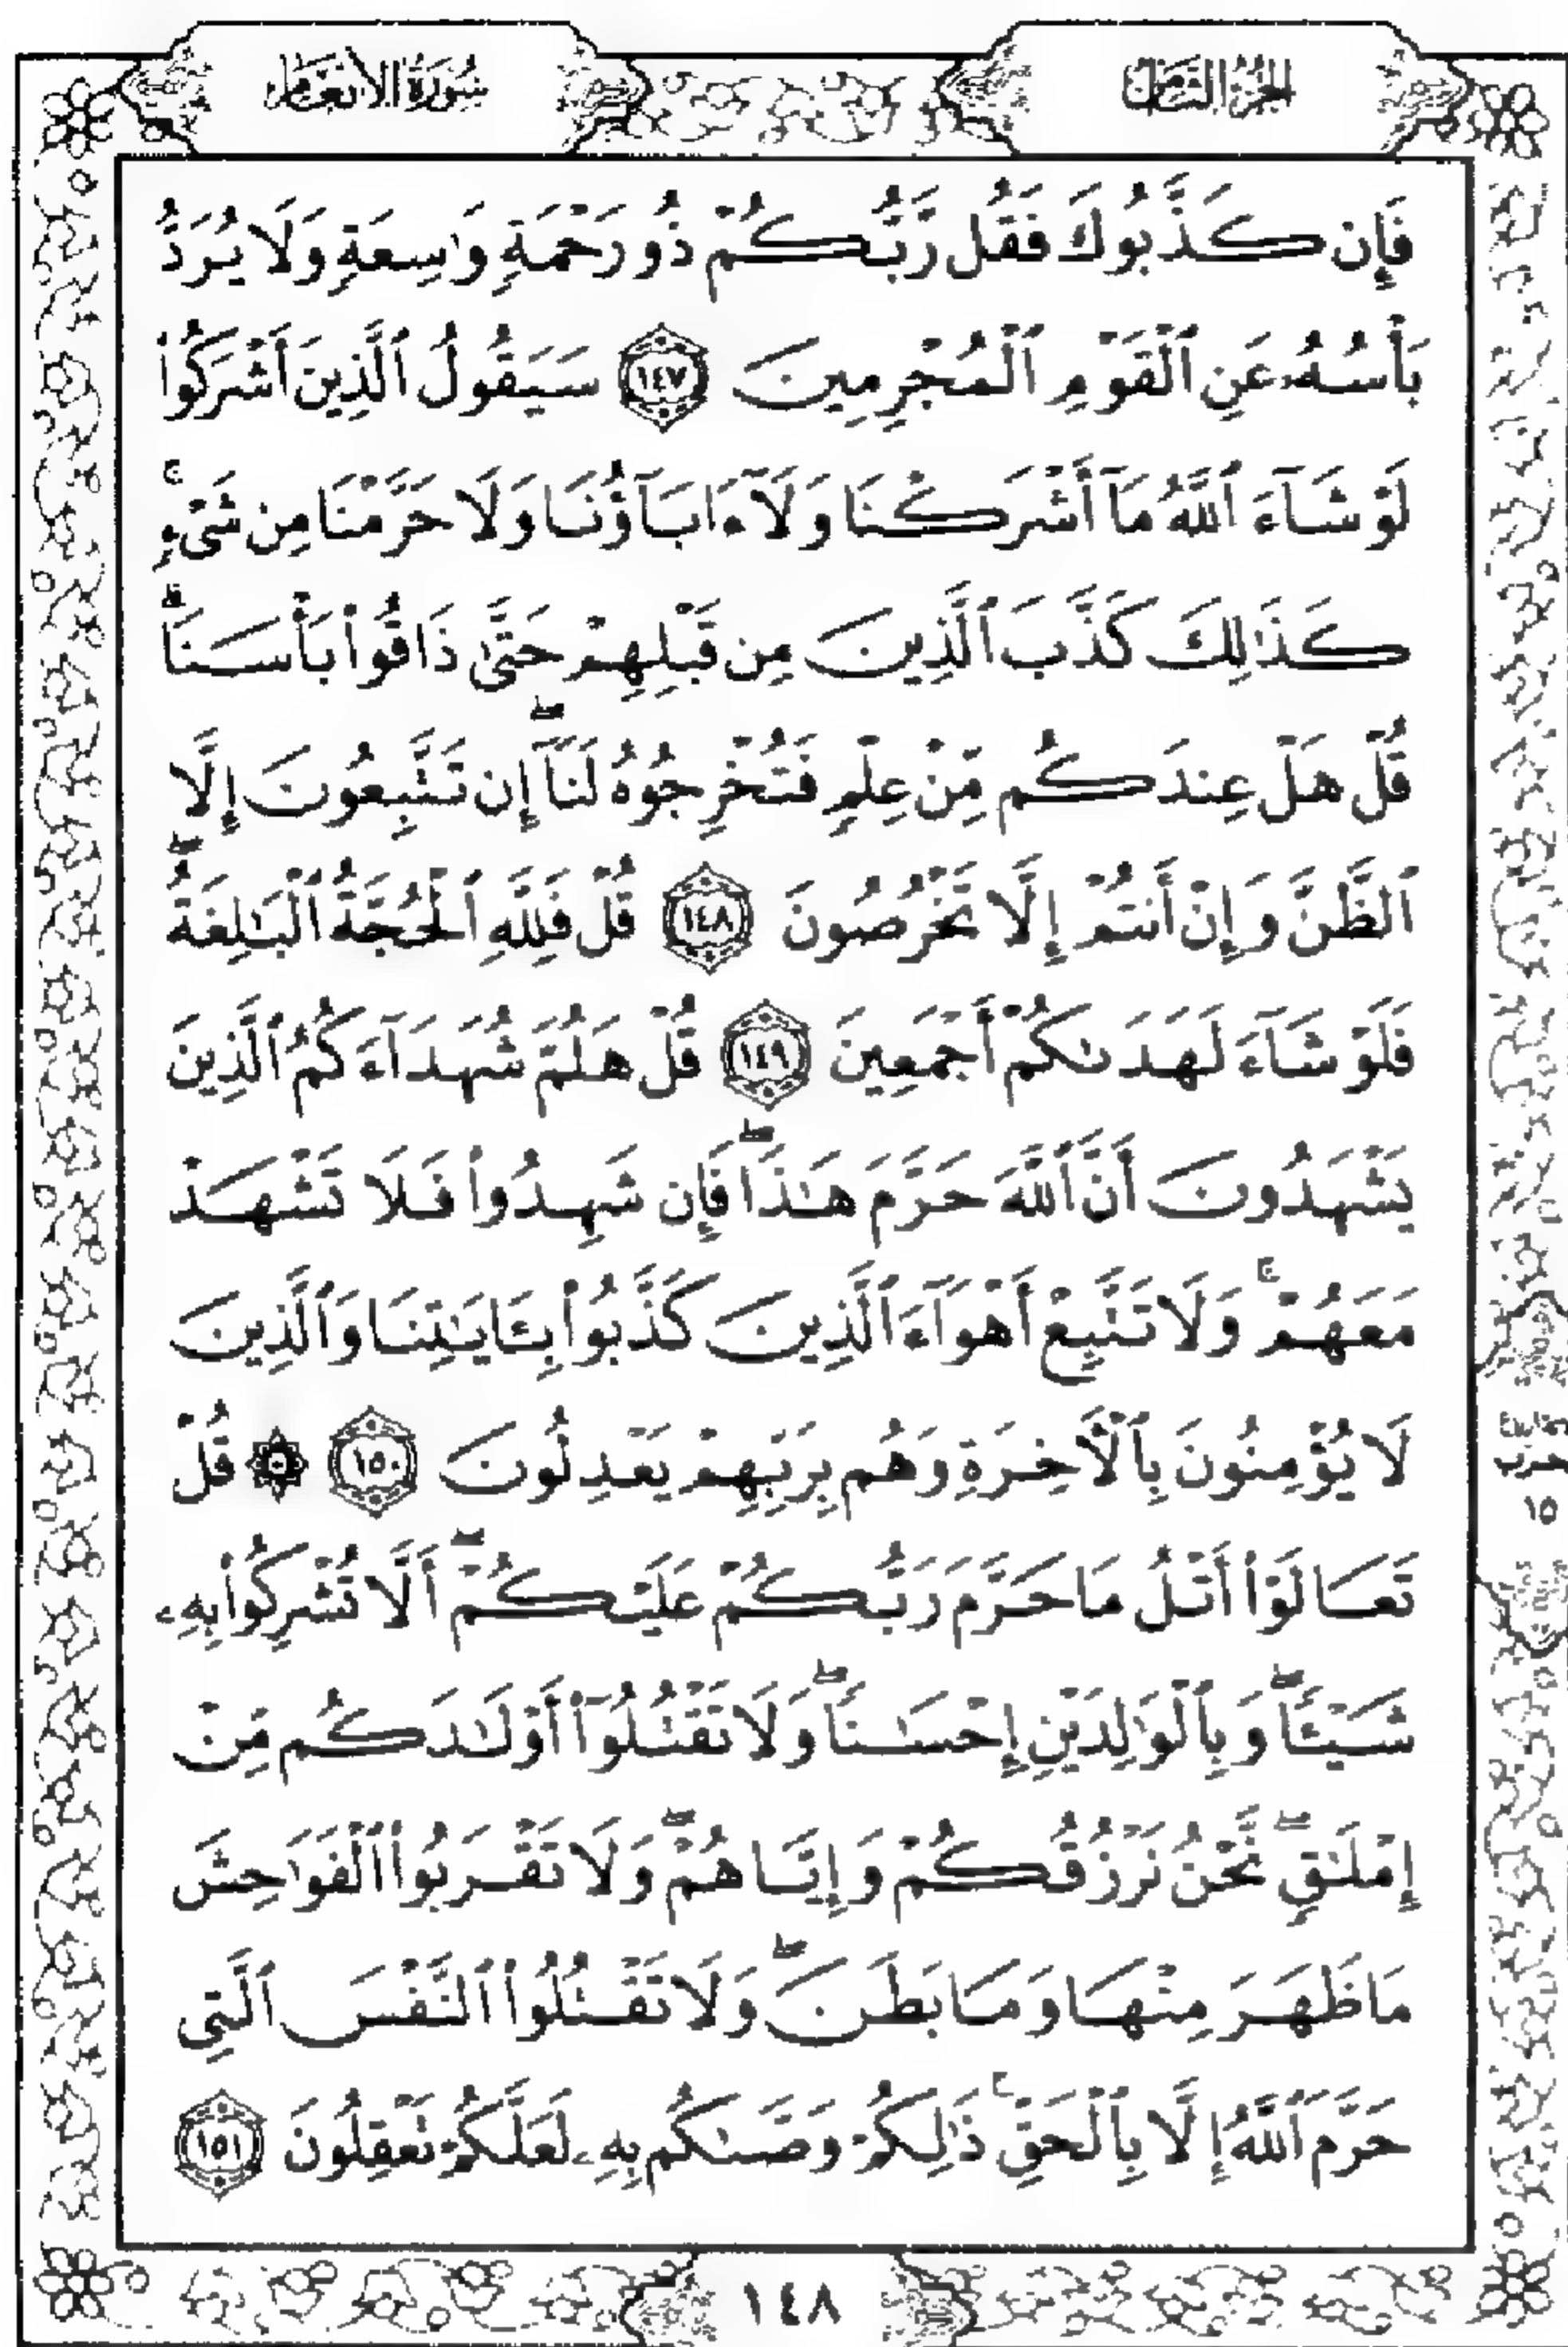 الجزء الثامن
سورة الأنعام
فَإِن كَذَّبُوكَ فَقُل رَّبُّكُمْ ذُو رَحْمَةٍ وَٰسِعَةٍ وَلَا يُرَدُّ
بَأْسُهُۥ عَنِ ٱلْقَوْمِ ٱلْمُجْرِمِينَ ١٤٧ سَيَقُولُ ٱلَّذِينَ أَشْرَكُوا۟
لَوْ شَآءَ ٱللَّهُ مَآ أَشْرَكْنَا وَلَآ ءَابَآؤُنَا وَلَا حَرَّمْنَا مِن شَىْءٍ ۚ
كَذَٰلِكَ كَذَّبَ ٱلَّذِينَ مِن قَبْلِهِمْ حَتَّىٰ ذَاقُوا۟ بَأْسَنَا ۗ
قُلْ هَلْ عِندَكُم مِّنْ عِلْمٍ فَتُخْرِجُوهُ لَنَآ ۖ إِن تَتَّبِعُونَ إِلَّا
ٱلظَّنَّ وَإِنْ أَنتُمْ إِلَّا تَخْرُصُونَ ١٤٨ قُلْ فَلِلَّهِ ٱلْحُجَّةُ ٱلْبَٰلِغَةُ ۖ
فَلَوْ شَآءَ لَهَدَىٰكُمْ أَجْمَعِينَ ١٤٩ قُلْ هَلُمَّ شُهَدَآءَكُمُ ٱلَّذِينَ
يَشْهَدُونَ أَنَّ ٱللَّهَ حَرَّمَ هَٰذَا ۖ فَإِن شَهِدُوا۟ فَلَا تَشْهَدْ
مَعَهُمْ ۚ وَلَا تَتَّبِعْ أَهْوَآءَ ٱلَّذِينَ كَذَّبُوا۟ بِـَٔايَٰتِنَا وَٱلَّذِينَ
لَا يُؤْمِنُونَ بِٱلْـَٔاخِرَةِ وَهُم بِرَبِّهِمْ يَعْدِلُونَ ١٥٠ ۞ قُلْ
تَعَالَوْا۟ أَتْلُ مَا حَرَّمَ رَبُّكُمْ عَلَيْكُمْ ۖ أَلَّا تُشْرِكُوا۟ بِهِۦ
شَيْـًٔا ۖ وَبِٱلْوَٰلِدَيْنِ إِحْسَٰنًا ۖ وَلَا تَقْتُلُوٓا۟ أَوْلَٰدَكُم مِّنْ
إِمْلَٰقٍ ۖ نَّحْنُ نَرْزُقُكُمْ وَإِيَّاهُمْ ۖ وَلَا تَقْرَبُوا۟ ٱلْفَوَٰحِشَ
مَا ظَهَرَ مِنْهَا وَمَا بَطَنَ ۖ وَلَا تَقْتُلُوا۟ ٱلنَّفْسَ ٱلَّتِى
حَرَّمَ ٱللَّهُ إِلَّا بِٱلْحَقِّ ۚ ذَٰلِكُمْ وَصَّىٰكُم بِهِۦ لَعَلَّكُمْ تَعْقِلُونَ ١٥١
حزب
١٥
١٤٨